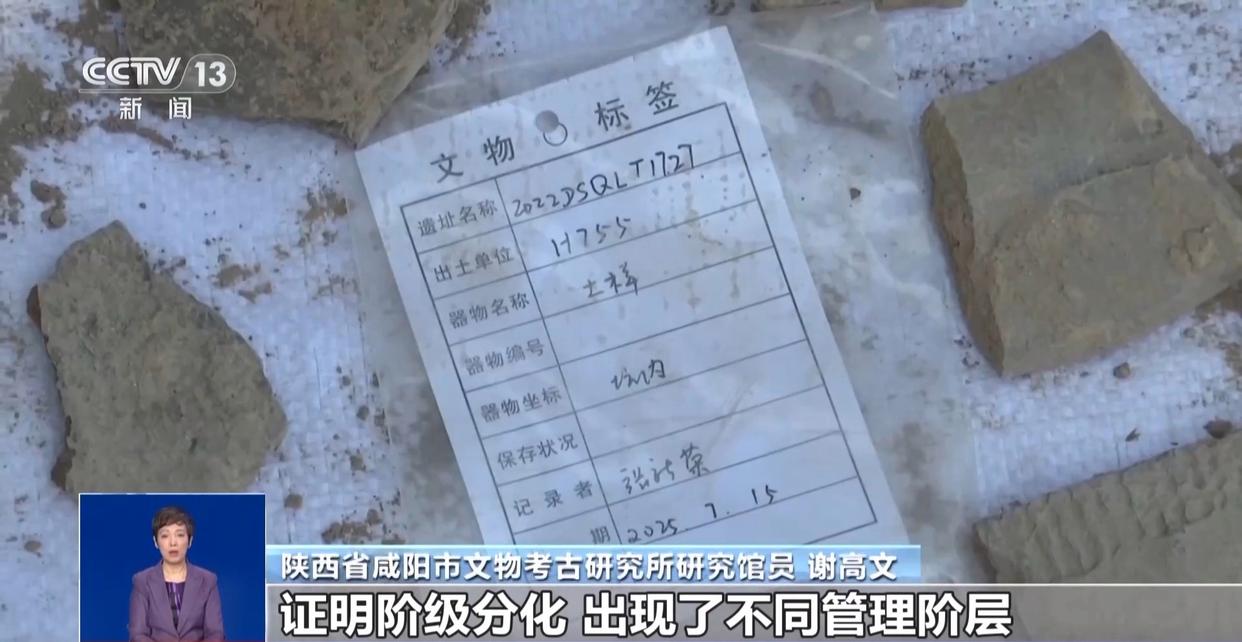 CCTV 13
新闻
文物标签
遗址名称 2022DSQLT1727
出土单位 H755
器物名称 土样
器物编号
器物坐标 坑内
保存状况
记录者
期 2025.7.15
陕西省咸阳市文物考古研究所研究馆员 谢高文
证明阶级分化 出现了不同管理阶层